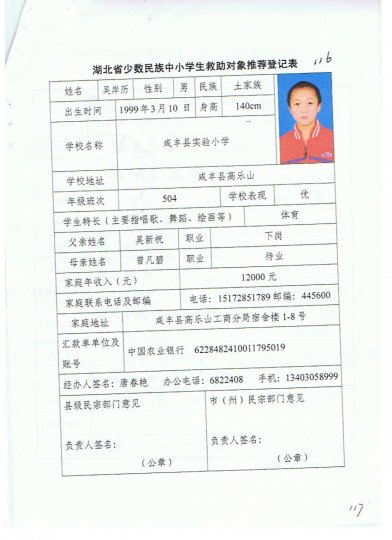 116
湖北省少数民族中小学生救助对象推荐登记表
姓名 吴岸历 性别 男 民族 土家族
出生时间 1999年3月10日 身高 140cm
学校名称 咸丰县实验小学
学校地址 咸丰县高乐山
年级班次 504 学校表现 优
学生特长（主要指唱歌、舞蹈、绘画等） 体育
父亲姓名 吴新祝 职业 下岗
母亲姓名 曾凡碧 职业 待业
家庭年收入（元） 12000元
家庭联系电话及邮编 电话：15172851789 邮编：445600
家庭地址 咸丰县高乐山工商分局宿舍楼1-8号
汇款单单位及
账号
中国农业银行 6228482410011795019
经办人签名：唐春艳 办公电话：6822408 手机：13403058999
县级民宗部门意见
市（州）民宗部门意见
负责人签名：
负责人签名：
（公章）
（公章）
117